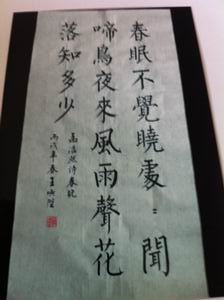 春眠不覺曉處〻聞
啼鳥夜來風雨聲花
落知多少
孟浩然诗春晓
丙戌年春王